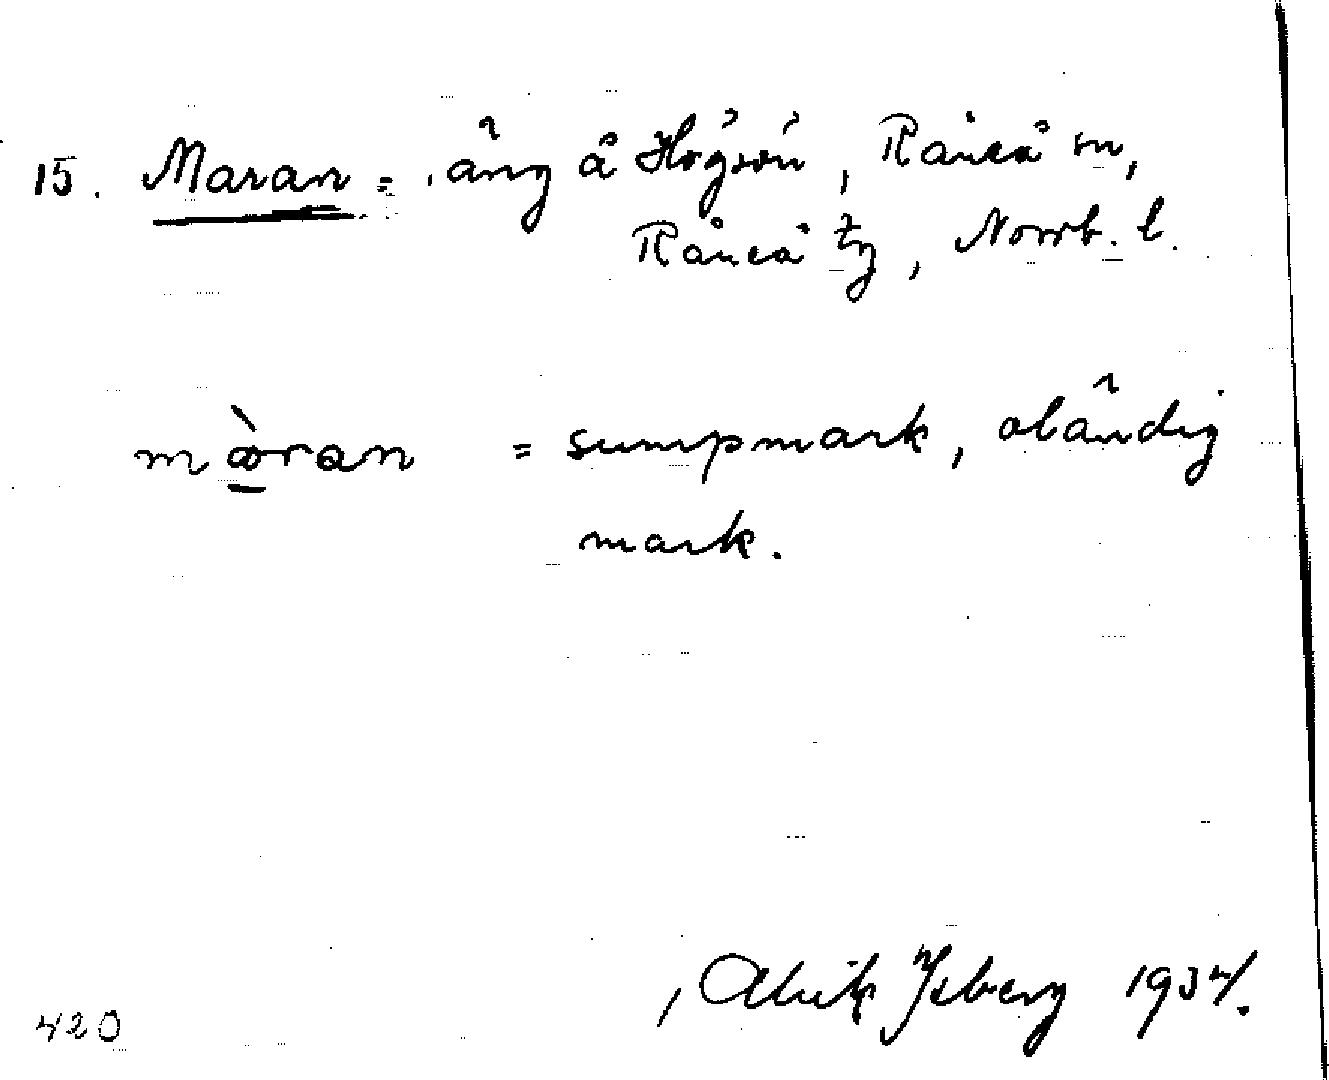 15. Maran = äng å Högsön, Råneå sn,
Råneå tg, Norrb. l.
mòran = sumpmark, oländig
mark.
Alrik Isberg 1934.
420